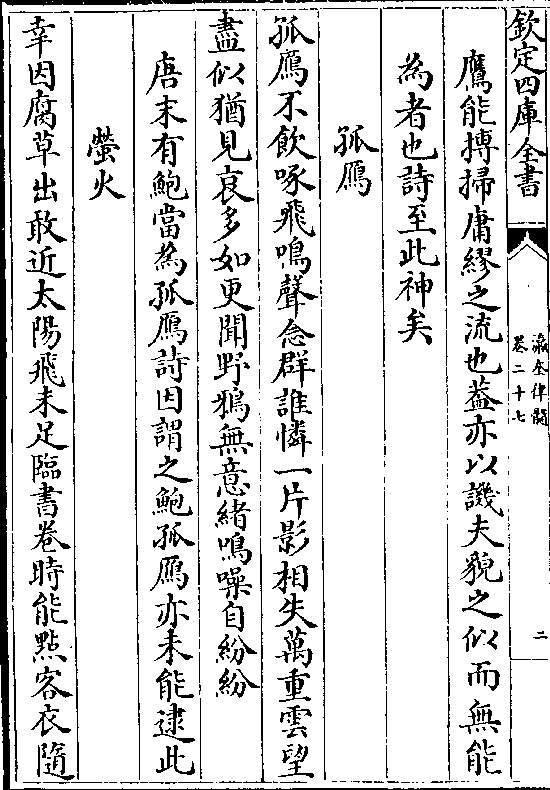 欽定四庫全書
瀛奎律髓
卷二十七
二
鷹能搏掃庸繆之流也蓋亦以譏夫貌之似而無能
為者也詩至此神矣
孤鴈
孤鴈不飲啄飛鳴聲念群誰憐一片影相失萬重雲望
盡似猶見哀多如更聞野鴉無意緒鳴噪自紛紛
唐末有鮑當為孤鴈詩因謂之鮑孤鴈亦未能逮此
螢火
幸因腐草出敢近太陽飛未足臨書卷時能點客衣隨